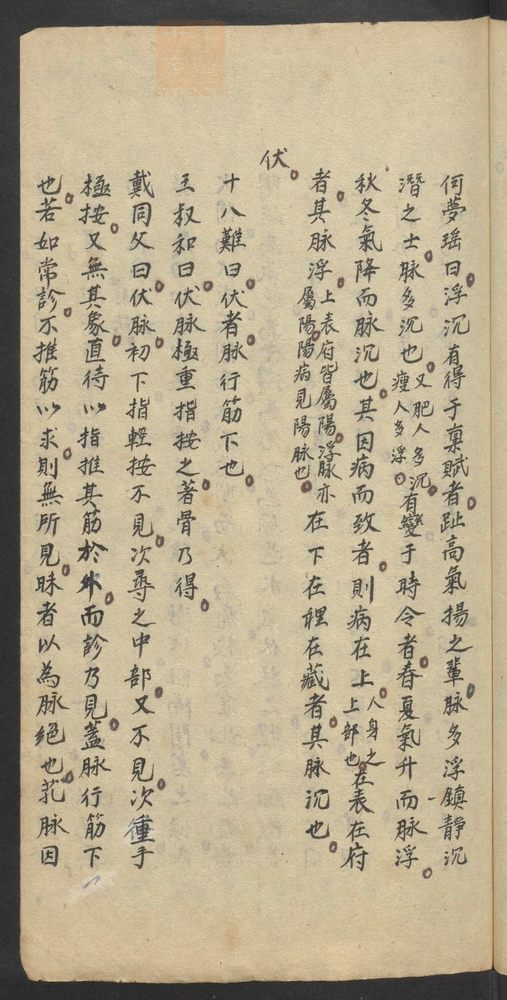 何夢瑤曰浮沉有得于禀賦者趾高氣揚之輩脉多浮鎮靜沉
潛之士脉多沉也又肥人多沉瘦人多浮有變于時令者春夏氣升而脉浮
秋冬氣降而脉沉也其因病而致者則病在上人身之上部也在表在府
者其脉浮上表府皆屬陽浮脉亦屬陽陽病見陽脉也在下在裡在藏者其脉沉也
伏
十八難曰伏者脉行筋下也
王叔和曰伏脉極重指按之著骨乃得
戴同父曰伏脉初下指輕按不見次尋之中部又不見次重手
極按又無其象直待以指推其筋於外而診乃見蓋脉行筋下
也若如常診不推筋以求則無所見昧者以為脉絶也芤脉因